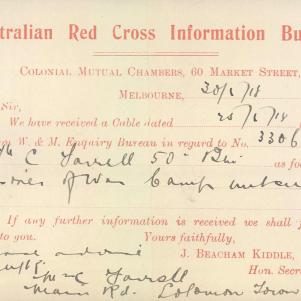 tralian Red Cross Information Bu
COLONIAL MUTUAL CHAMBERS, 60 MARKET STREET,
MELBOURNE, 30/1/18
Sir,
We have received a Cable dated 25/1/18
W. & M. Enquiry Bureau in regard to No. 3306
C Farrell 50th Bn. as fo
of War Camp
If any further information is received we shall f
Yours faithfully,
J. BEACHAM KIDDLE,
Hon. Secr
Farrell
Main Rd. Solomon Town